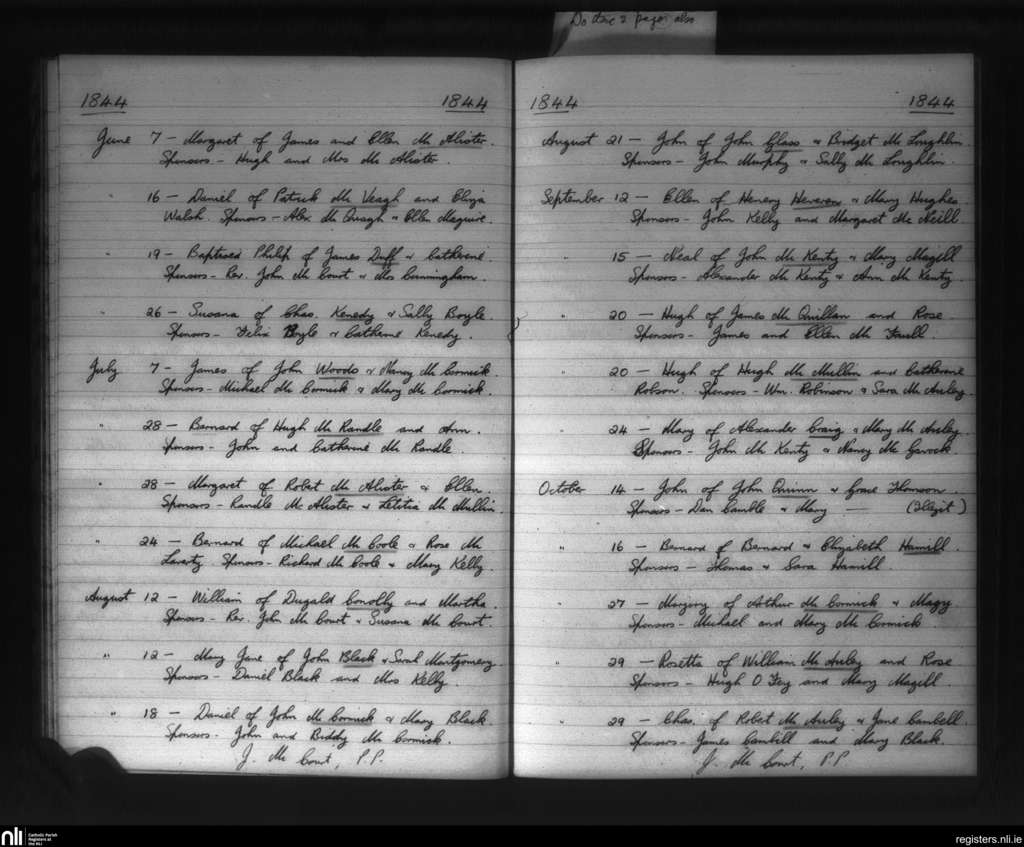 Do doc 2 pages also
1844 1844
June 7 - Margaret of James and Ellen Mc Alister.
Sponsors - Hugh and Mrs Mc Alister.
" 16 - Daniel of Patrick Mc Veagh and Eliza
Walsh. Sponsors - Alex. Mc Quagh & Ellen Maguire.
" 19 - Baptised Philip of James Duff & Catherine.
Sponsors - Rev. John Mc Court & Mrs Cunningham.
" 26 - Susana of Chas. Kenedy & Sally Boyle.
Sponsors - Felix Boyle & Catherine Kenedy.
July 7 - James of John Woods & Nancy Mc Cormick.
Sponsors - Michael Mc Cormick & Mary Mc Cormick.
" 28 - Bernard of Hugh Mc Randle and Ann.
Sponsors - John and Catherine Mc Randle.
" 28 - Margaret of Robet Mc Alister & Ellen.
Sponsors - Randle Mc Alister & Letitia Mc Mullin.
" 24 - Bernard of Michael Mc Coole & Rose Mc
Laverty. Sponsors - Richard Mc Coole & Mary Kelly.
August 12 - William of Dugald Conolly and Martha.
Sponsors - Rev. John Mc Court & Susana Mc Court.
" 12 - Mary Jane of John Black & Sarah Montgomery
Sponsors - Daniel Black and Mrs Kelly.
" 18 - Daniel of John Mc Cormick & Mary Black.
Sponsors - John and Biddy Mc Cormick.
J. Mc Court, P.P.
1844 1844
August 21 - John of John Glass & Bridget Mc Loughlin
Sponsors - John Murphy & Sally Mc Loughlin.
September 12 - Ellen of Henery Heveren & Mary Hughes.
Sponsors - John Kelly and Margaret Mc Neill
" 15 - Neal of John Mc Kenty & Mary Magill
Sponsors - Alexander Mc Kenty & Ann Mc Kenty.
" 20 - Hugh of James Mc Quillan and Rose.
Sponsors - James and Ellen Mc Faull.
" 20 - Hugh of Hugh Mc Mullin and Catherine
Robson. Sponsors - Wm. Robinson & Sara Mc Auley.
" 24 - Mary of Alexander Craig & Mary Mc Auley.
Sponsors - John Mc Kenty & Nancy Mc Gavock.
October 14 - John of John Quinn & Grace Thomson.
Sponsors - Dan Camble & Mary — (Illegit)
" 16 - Bernard of Bernard & Elizabeth Hamill.
Sponsors - Thomas & Sara Hamill
" 27 - Margery of Arthur Mc Cormick & Magy.
Sponsors - Michael and Mary Mc Cormick
" 29 - Rosetta of William Mc Auley and Rose
Sponsors - Hugh O Fey and Mary Magill.
" 29 - Chas. of Robet Mc Auley & Jane Cambell.
Sponsors - James Cambill and Mary Black.
J. Mc Court, P.P
nli Catholic Parish
Registers at
the NLI
registers.nli.ie